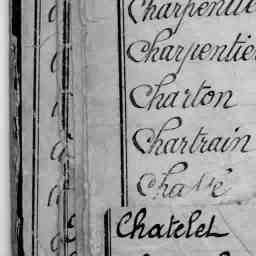 Charpentie
Charpentier
Charton
Chartrain
Chassé
Chatelet